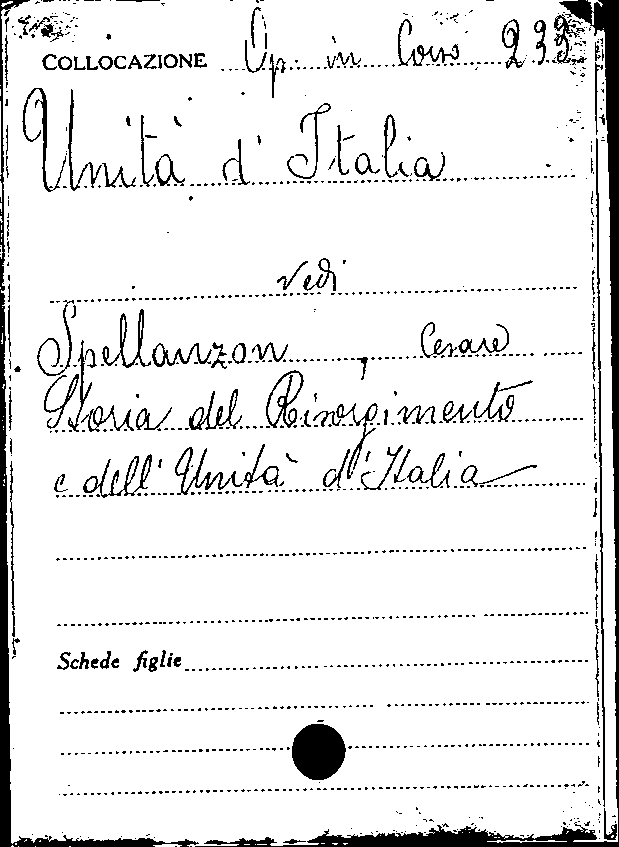 COLLOCAZIONE Op. in Corso 233
Unità d'Italia
vedi
Spellanzon, Cesare
Storia del Risorgimento
e dell'Unità d'Italia
Schede figlie